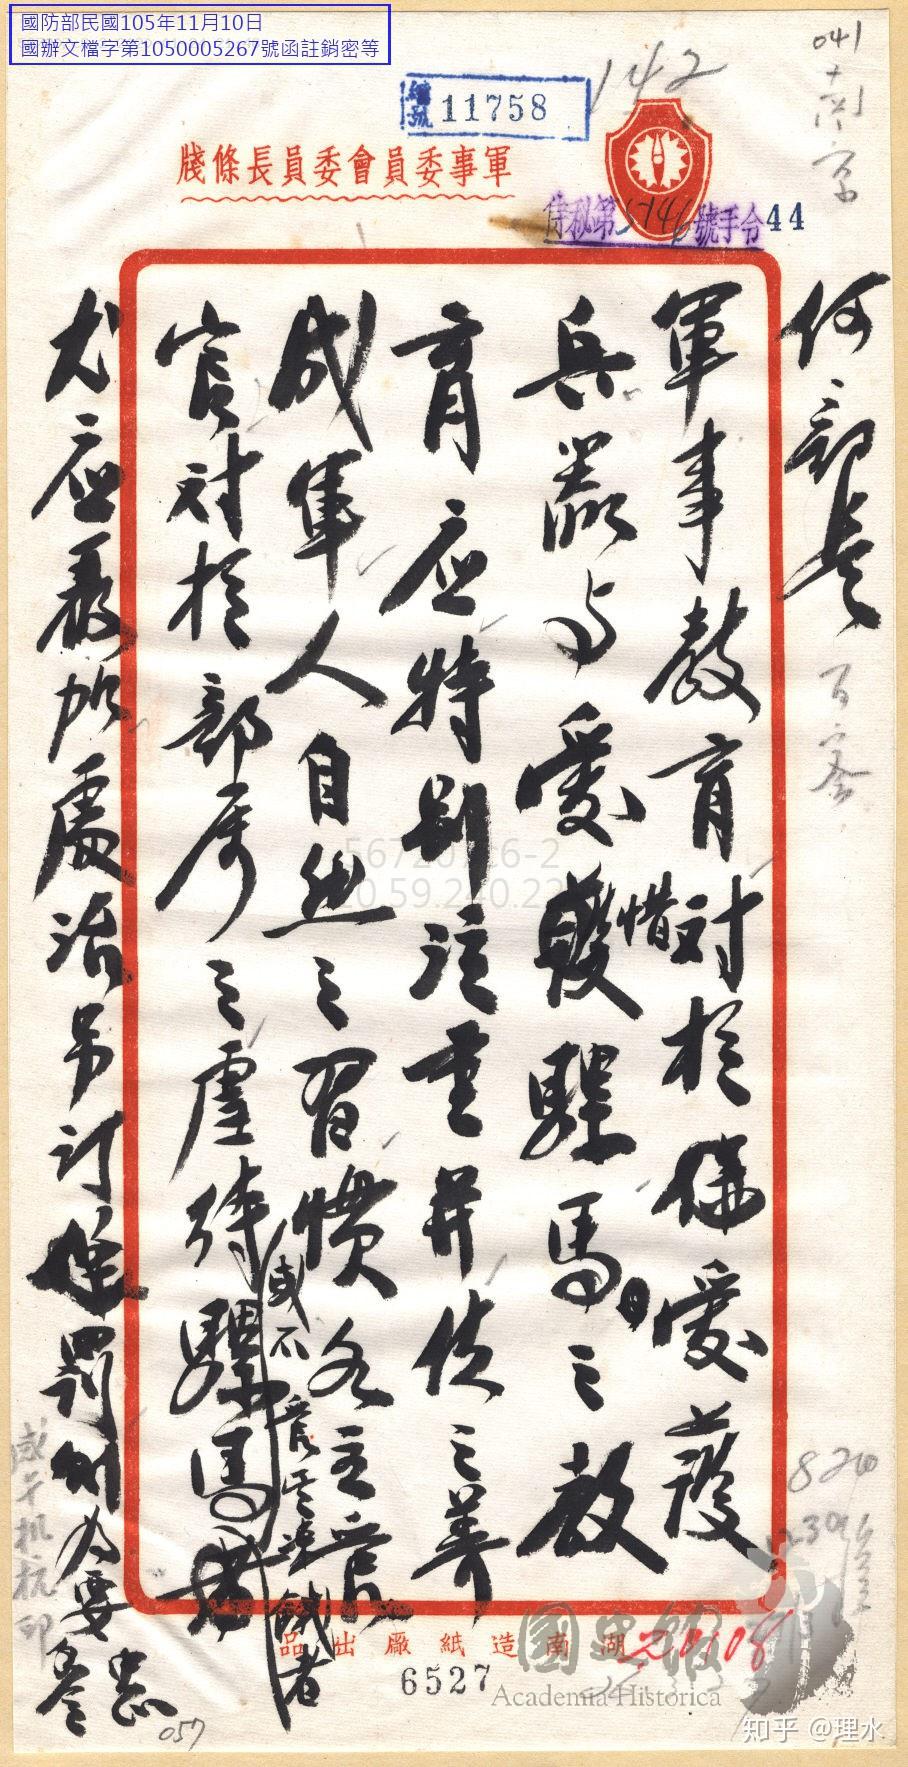 國防部民國105年11月10日
國辦文檔字第1050005267號函註銷密等
142
041
南京
編號 11758
軍事委員會委員長條牋
侍秘第5746號手令44
何部長
軍事教育對於保愛護
兵器与愛護惜騾馬之教
育应特别注重并使之養
成軍人自然之習慣各主管
官对於部属之虐待騾馬
或不
者
尤应嚴加處治另訂
罰則為要
567207c6-2
10.59.240.22
湖南造紙廠出品
6527
057
國史館
Academia Historica
知乎 @理水